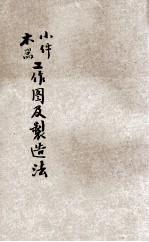 小件木器工作图及製造法